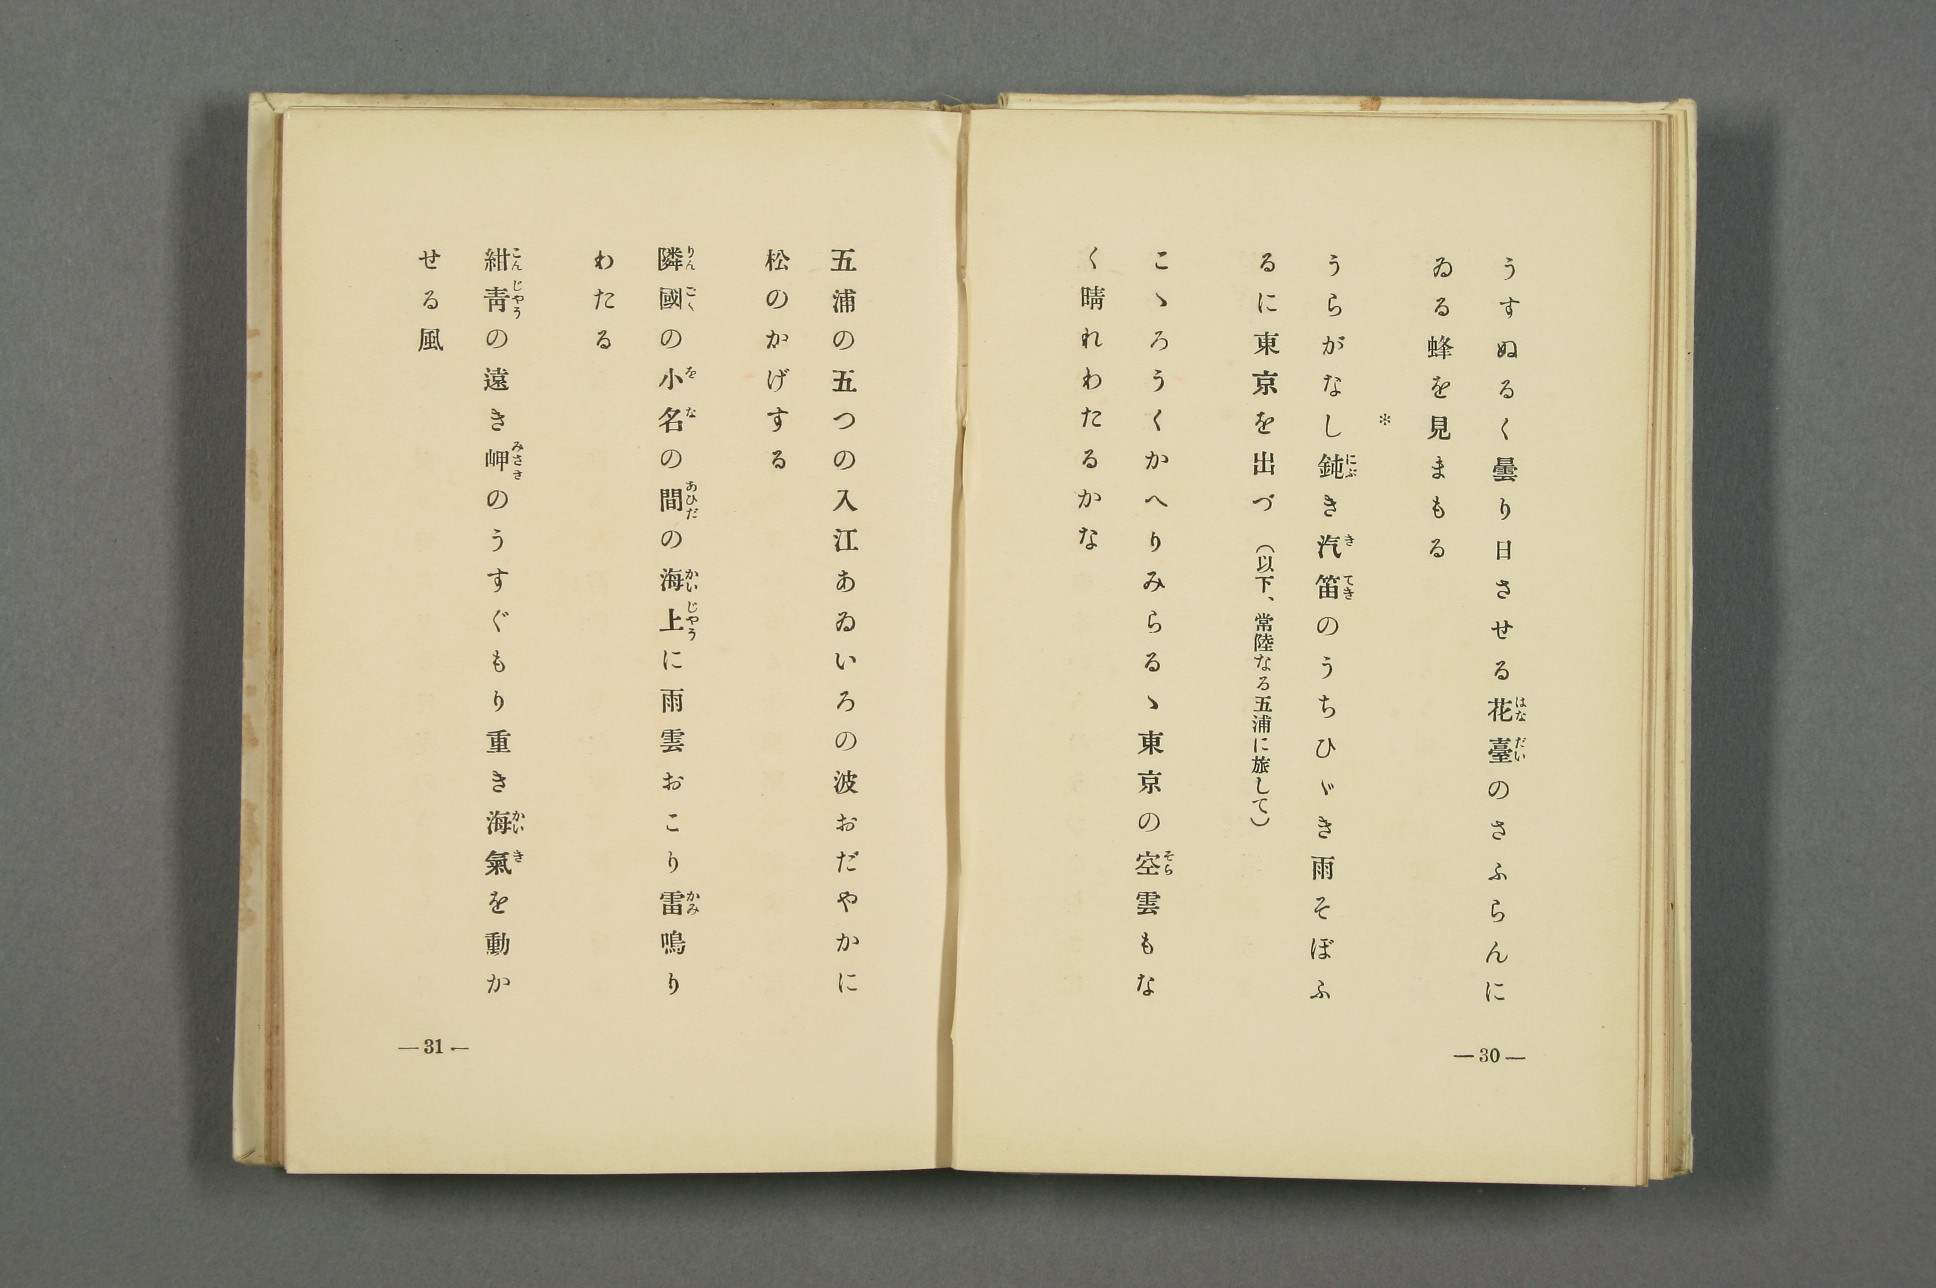 うすぬるく曇り日させる花臺のさふらんに
ゐる蜂を見まもる
＊
うらがなし鈍き汽笛のうちひゞき雨そぼふ
るに東京を出づ（以下、常陸なる五浦に旅して）
こゝろうくかへりみらるゝ東京の空雲もな
く晴れわたるかな
—30—
五浦の五つの入江あゐいろの波おだやかに
松のかげする
隣國の小名の間の海上に雨雲おこり雷鳴り
わたる
紺靑の遠き岬のうすぐもり重き海氣を動か
せる風
—31—